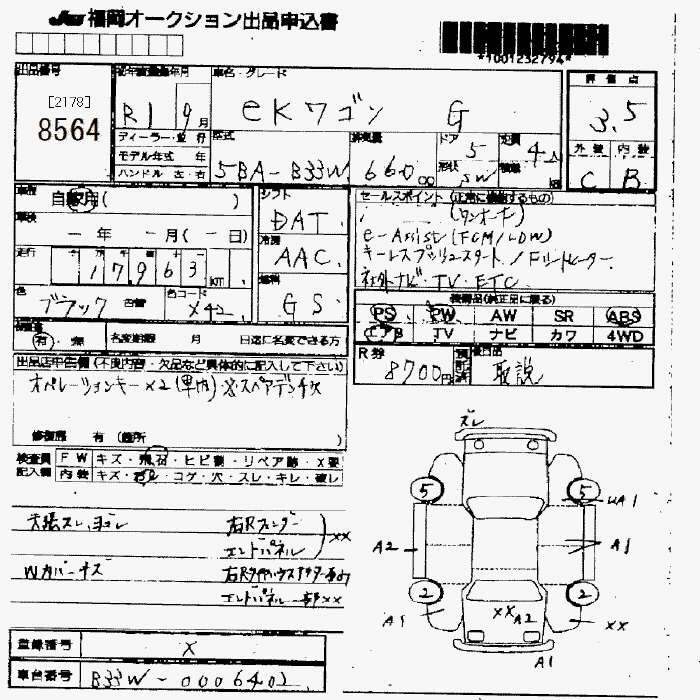 JU福岡オークション出品申込書
*1001232794*
出品番号
[2178]
8564
初年度登録年月
R1 9月
車名・グレード
eKワゴン G
評価点
3.5
外装 内装
C B
ディーラー・並行
モデル年式 年
ハンドル 左・右
型式
5BA-B33W
排気量
660cc
ドア
5
形状
SW
定員
4人
積載
KG
車歴
自家用( )
車検
ー年 ー月(ー日)
走行
17963 KM
色
ブラック 色替
色コード
X42
シフト
DAT
冷房
AAC
燃料
GS
セールスポイント(正常に機能するもの)
(ワンオーナー)
e-Assist(FCM/LDW)
キーレスプッシュスタート/Fシートヒーター
社外ナビ・TV・ETC
装備品(純正品に限る)
PS PW AW SR ABS
エアB TV ナビ カワ 4WD
有・無 名変期限 月 日迄に名変できる方
R券
8700円
預託済
後日品
取説
出品店申告欄(不良内容・欠品など具体的に記入して下さい)
オペレーションキー×2(車内)※スペアデンチ欠
修復歴 有(箇所 )
検査員 FW キズ・飛石・ヒビ割・リペア跡・X要
記入欄 内装 キズ・ヨゴレ・コゲ・穴・スレ・キレ・破レ
天張スレ、ヨゴレ 右Rフェンダー
エンドパネル XX
Wカバーキズ 右Rタイヤハウスアウター
エンドパネル一部XX
ズレ
5 5
UA1
A2 A1
2 2
A1 XX A2 XX
A1
登録番号 X
車台番号 B33W-0006402